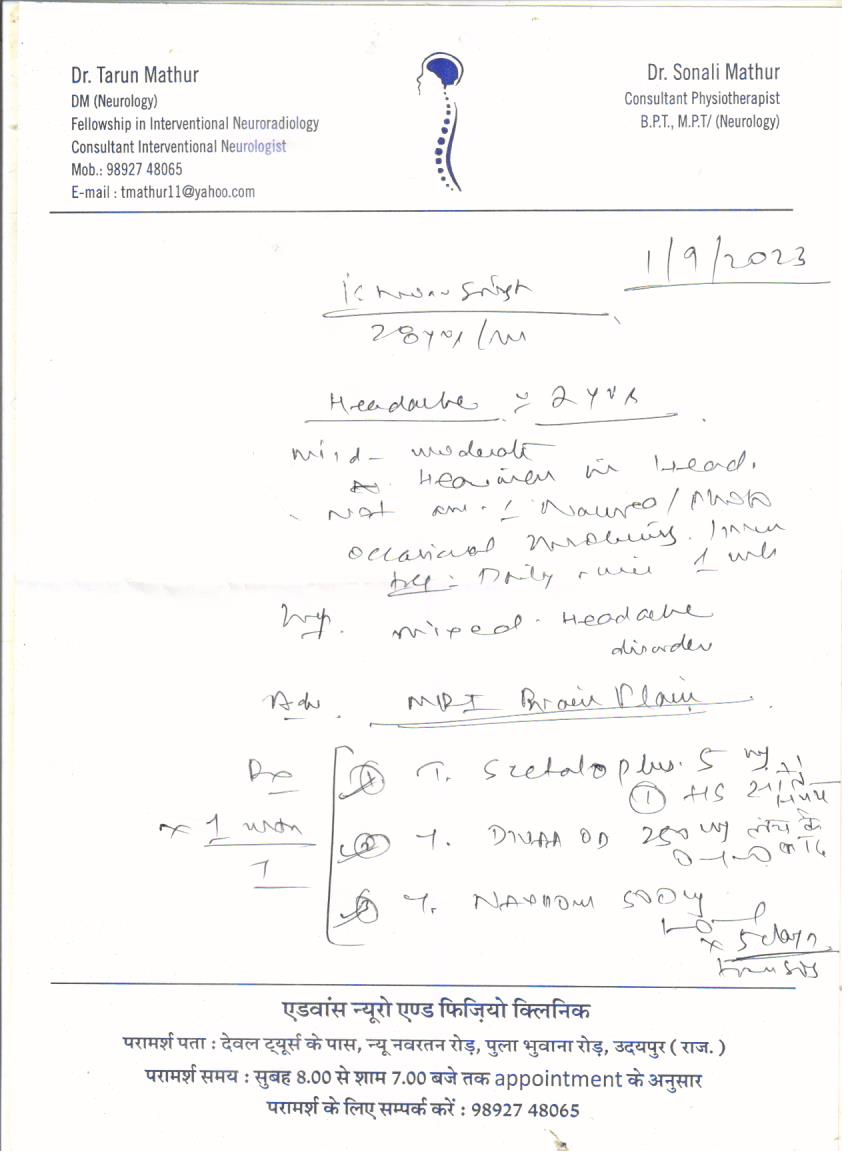 Dr. Tarun Mathur
DM (Neurology)
Fellowship in Interventional Neuroradiology
Consultant Interventional Neurologist
Mob.: 98927 48065
E-mail : tmathur11@yahoo.com
Dr. Sonali Mathur
Consultant Physiotherapist
B.P.T., M.P.T/ (Neurology)
1/9/2023
Singh
28 yrs/m
Headache 2 yrs
mild - moderate
Heaviness in Head.
Not Nausea/Photo
occasional
Daily
Imp. mixed Headache
disorder
Adv. MRI Brain Plain
Rx
x 1 mon
1 T. Szetalo plus 5 mg
1 HS
2 T. DIVAA OD 250 mg लंच के
0-1-0
3 T. NAXDOM 500 mg
1-0-1
x 5 days
एडवांस न्यूरो एण्ड फिज़ियो क्लिनिक
परामर्श पता : देवल ट्यूर्स के पास, न्यू नवरतन रोड़, पुला भुवाना रोड़, उदयपुर ( राज. )
परामर्श समय : सुबह 8.00 से शाम 7.00 बजे तक appointment के अनुसार
परामर्श के लिए सम्पर्क करें : 98927 48065